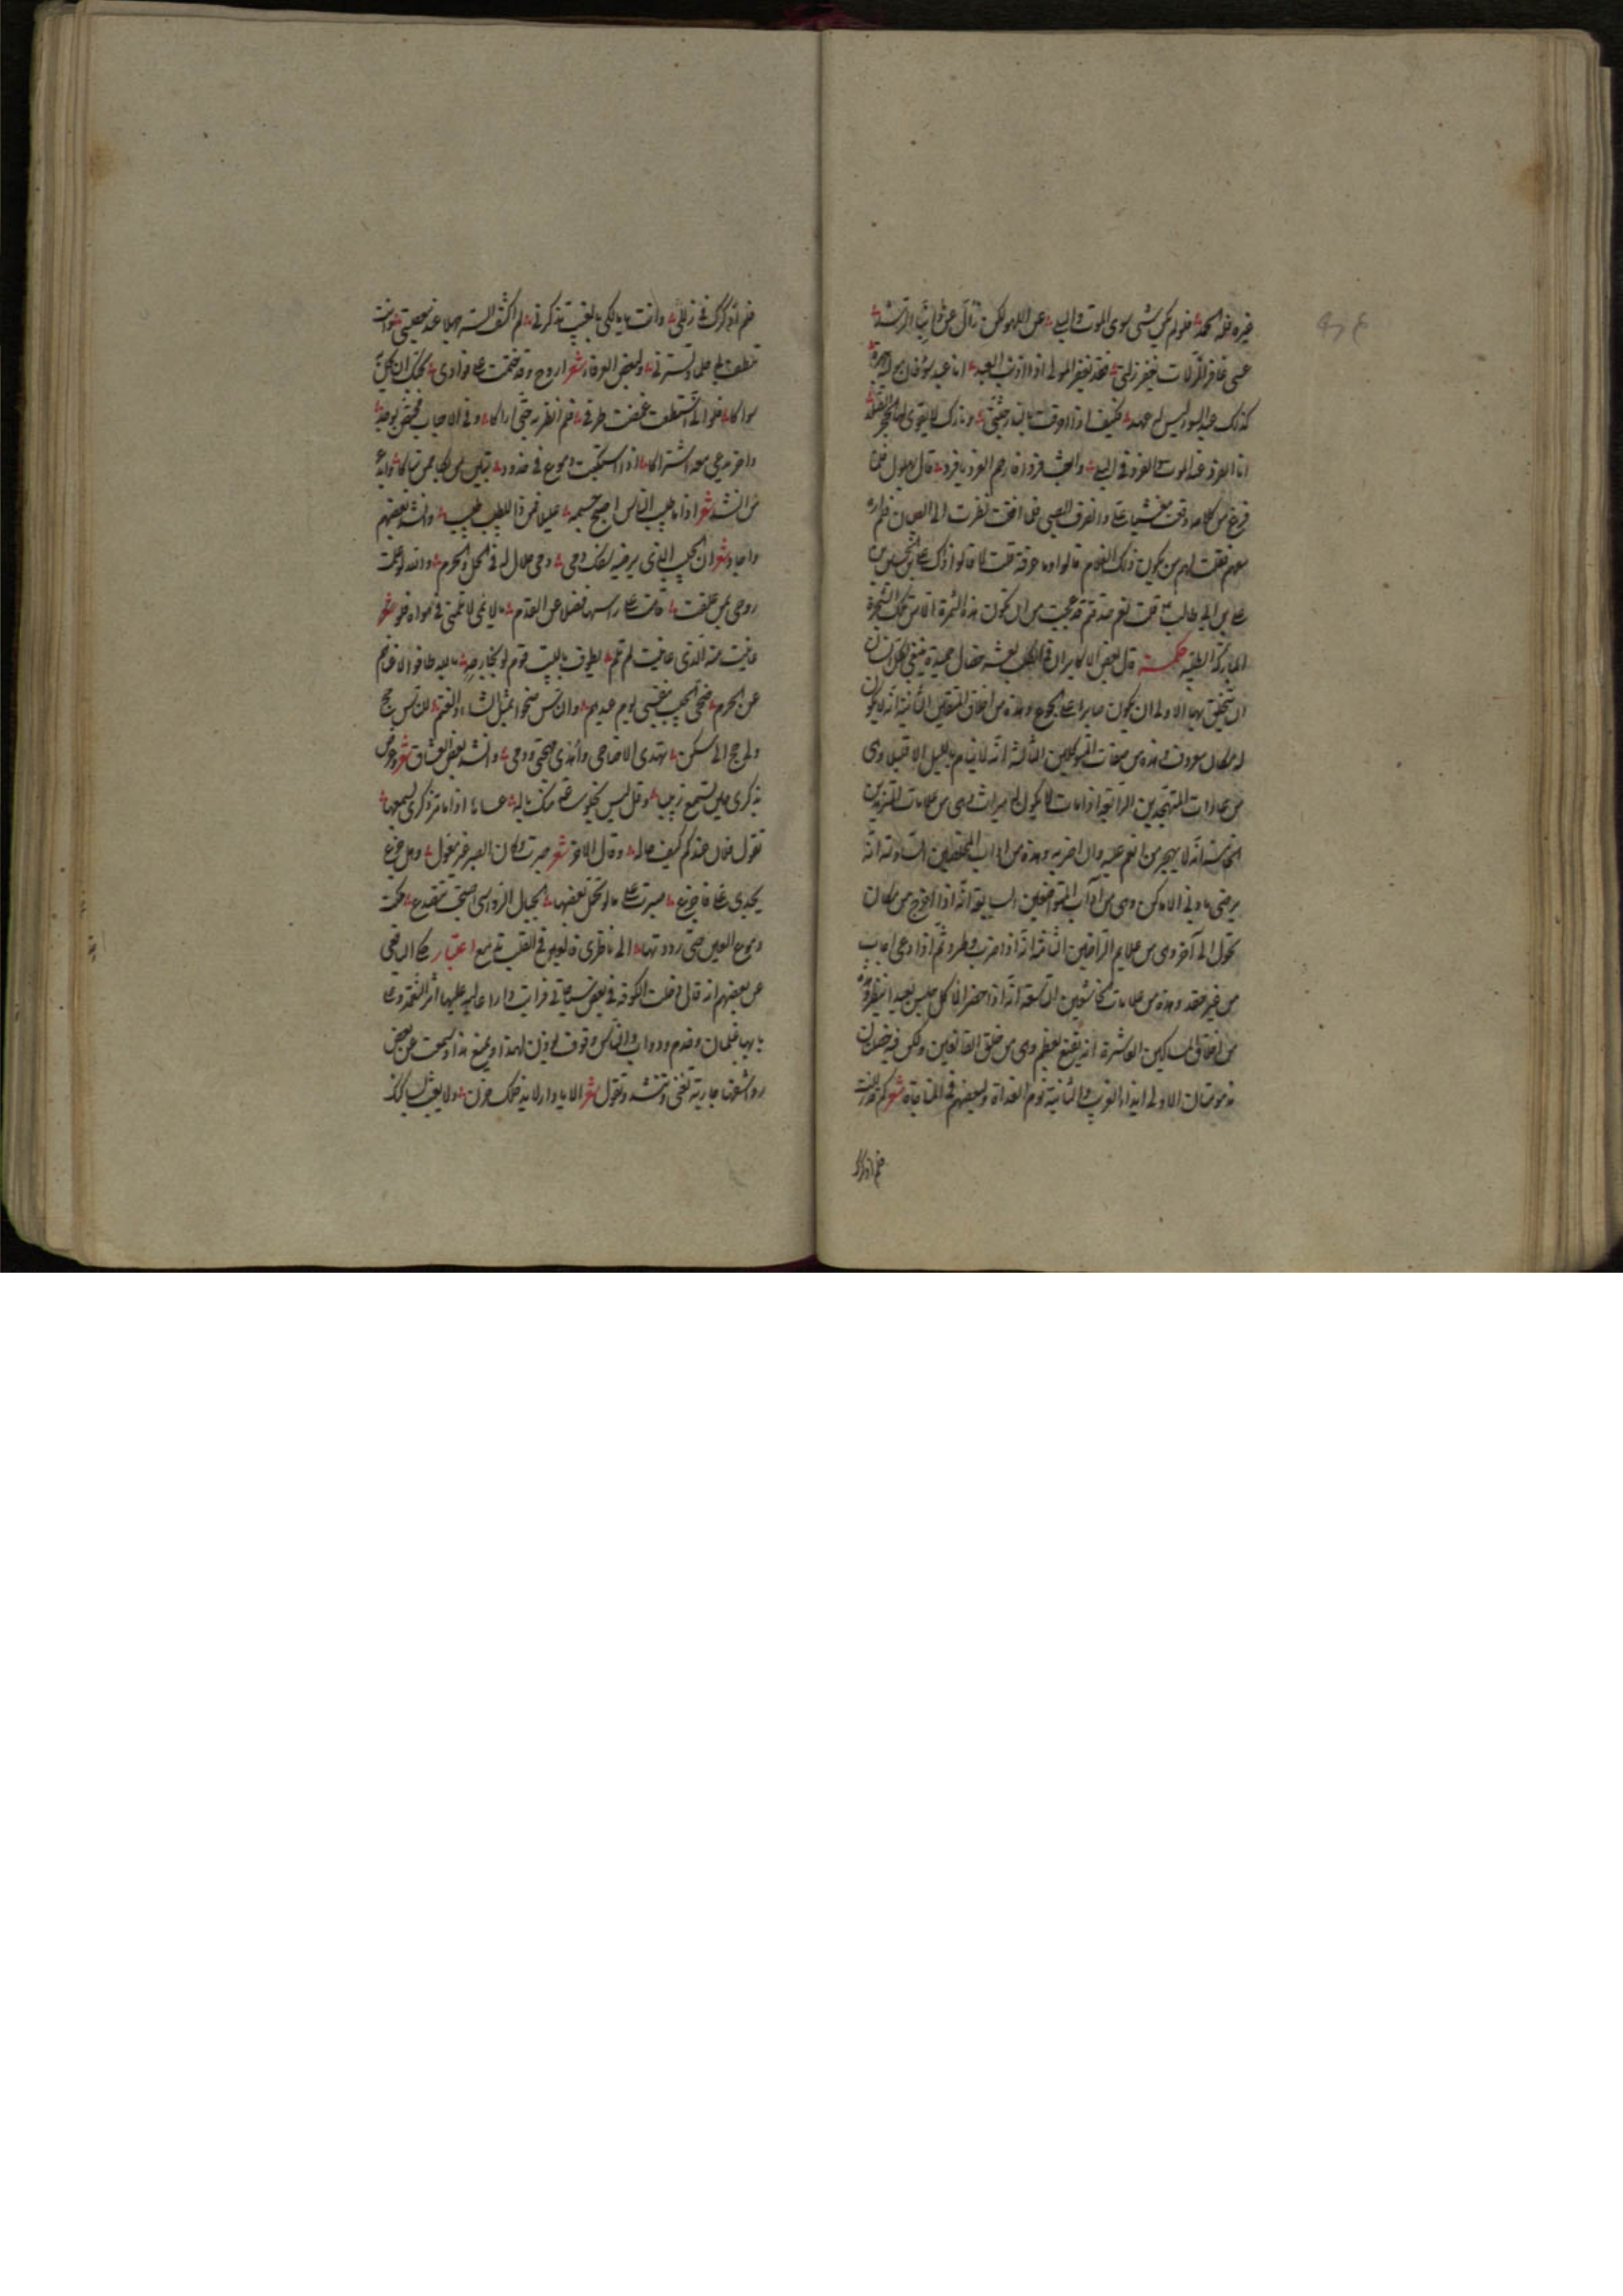 غيره فله الحمد فلو لم يكن شيء سوى الموت والبلى عن اللهو لكن زال عن رأينا الرشد
عسى غافر الزلات يغفر زلتي فقد يغفر المولى اذا اذنب العبد انا عبد سوء خنت مولاي عهده
كذلك عبد السوء ليس له عهد فكيف اذا احرقت بالنار جثتي ونارك لا يقوى لها الحجر الصلد
انا الفرد عند الموت والفرد في البلى وابعث فردا فارحم الفرد يا فرد قال بهلول فلما
فرغ من كلامه وقعت مغشيا علي وانصرف الصبي فلما افقت نظرت الى الصبيان فلم اره
معهم فقلت لهم من يكون ذلك الغلام قالوا وما عرفته قلت لا قالوا ذلك علي بن الحسين بن
علي بن ابي طالب ع قلت نعم قد عجبت من ان تكون هذه الثمرة الا من تلك الشجرة
المباركة الطيبة حكمة قال بعض الاكابر ان في الكلب عشر خصال حميدة ينبغي لكل انسان
ان يتخلق بها الاولى ان يكون صابرا على الجوع وهذه من اخلاق المتقين الثانية انه لا يكون
له مكان معروف وهذه من صفات المتوكلين الثالثة انه لا ينام بالليل الا قليلا وهي
من عادات المتهجدين الرابعة اذا مات لا يكون له ميراث وهي من علامات المتزهدين
الخامسة انه لا يهجر من انعم عليه وان اضر به وهذه من اداب المخلصين السادسة انه
يرضى بادنى الاماكن وهي من آداب المتواضعين السابعة انه اذا اخرج من مكان
تحول الى آخر وهي من علايم الراضين الثامنة انه اذا ضرب وطرد ثم اذا دعي اجاب
من غير حقد وهذه من علامات الخاشعين التاسعة انه اذا حضر الاكل جلس بعيدا ينظر وهذه
من اخلاق المساكين العاشرة انه يقنع بعظم وهي من خلق القانعين ولكن فيه خصلتان
مذمومتان الاولى ايذاء الغريب والثانية نوم الغداة ولبعضهم في المناجاة شعر كم قد زللت
فلم اذكرك
فلم اذكرك في زللي وانت يا مالكي بالغيب تذكرني لم اكشف الستر جهلا عند معصيتي وانت
تلطف بي حلما وتسترني ولبعض العرفاء شعر اروح وقد ختمت على فؤادي بحبك ان يحل
سواكا فلو اني استطعت غضضت طرفي فلم انظر به حتى اراكا وفي الاحباب مختص بوجد
واخر يدعي معه اشتراكا اذا اشتبكت دموع في خدود تبين من بكى ممن تباكى وابدع
من انشد شعر اذا ما طبيب الناس اصبح جسمه عليلا فمن ذا للطبيب طبيب وانشد بعضهم
واجاد شعر ان الحبيب الذي يرضيه سفك دمي دمي حلال له في الحل والحرم والله لو علمت
روحي بمن علقت قامت على رأسها فضلا عن القدم يا لائمي لا تلمني في هواه فلو شعر
عاينت منه الذي عاينت لم تلم يطوف بالبيت قوم لو بجارحة بالله طافوا لاغناهم
عن الحرم ضحى الحبيب بنفسي يوم عيدهم والناس ضحوا بمثل الشاء والغنم للناس حج
ولي حج الى سكني تهدى الاضاحي واهدي مهجتي ودمي وانشد بعض العشاق شعر وعرض
بذكري حين تسمع زينب وقل ليس يخلو ساعة منك باله عساها اذا ما مر ذكري بسمعها
تقول فلان عندكم كيف حاله وقال الاخر شعر صبرت وكان الصبر خير مغول وهل جزع
يجدي علي فاجزع صبرت على ما لو تحمل بعضها الجبال الرواسي اصبحت تتصدع ملكت
دموع العين حتى رددتها الى ناظري فالعين في القلب تدمع اعتبار حكى اليافعي
عن بعضهم انه قال دخلت الكوفة في بعض سياحاتي فرايت دارا عالية عليها أثر النعمة وعلى
بابها غلمان وخدم ودواب والناس وقوف يؤذن لهذا ويمنع هذا وسمعت عن بعض
رواشنها جارية تغني وتنشد وتقول شعر الا يا دار لا يدخلك حزن ولا يعبث بساكنك